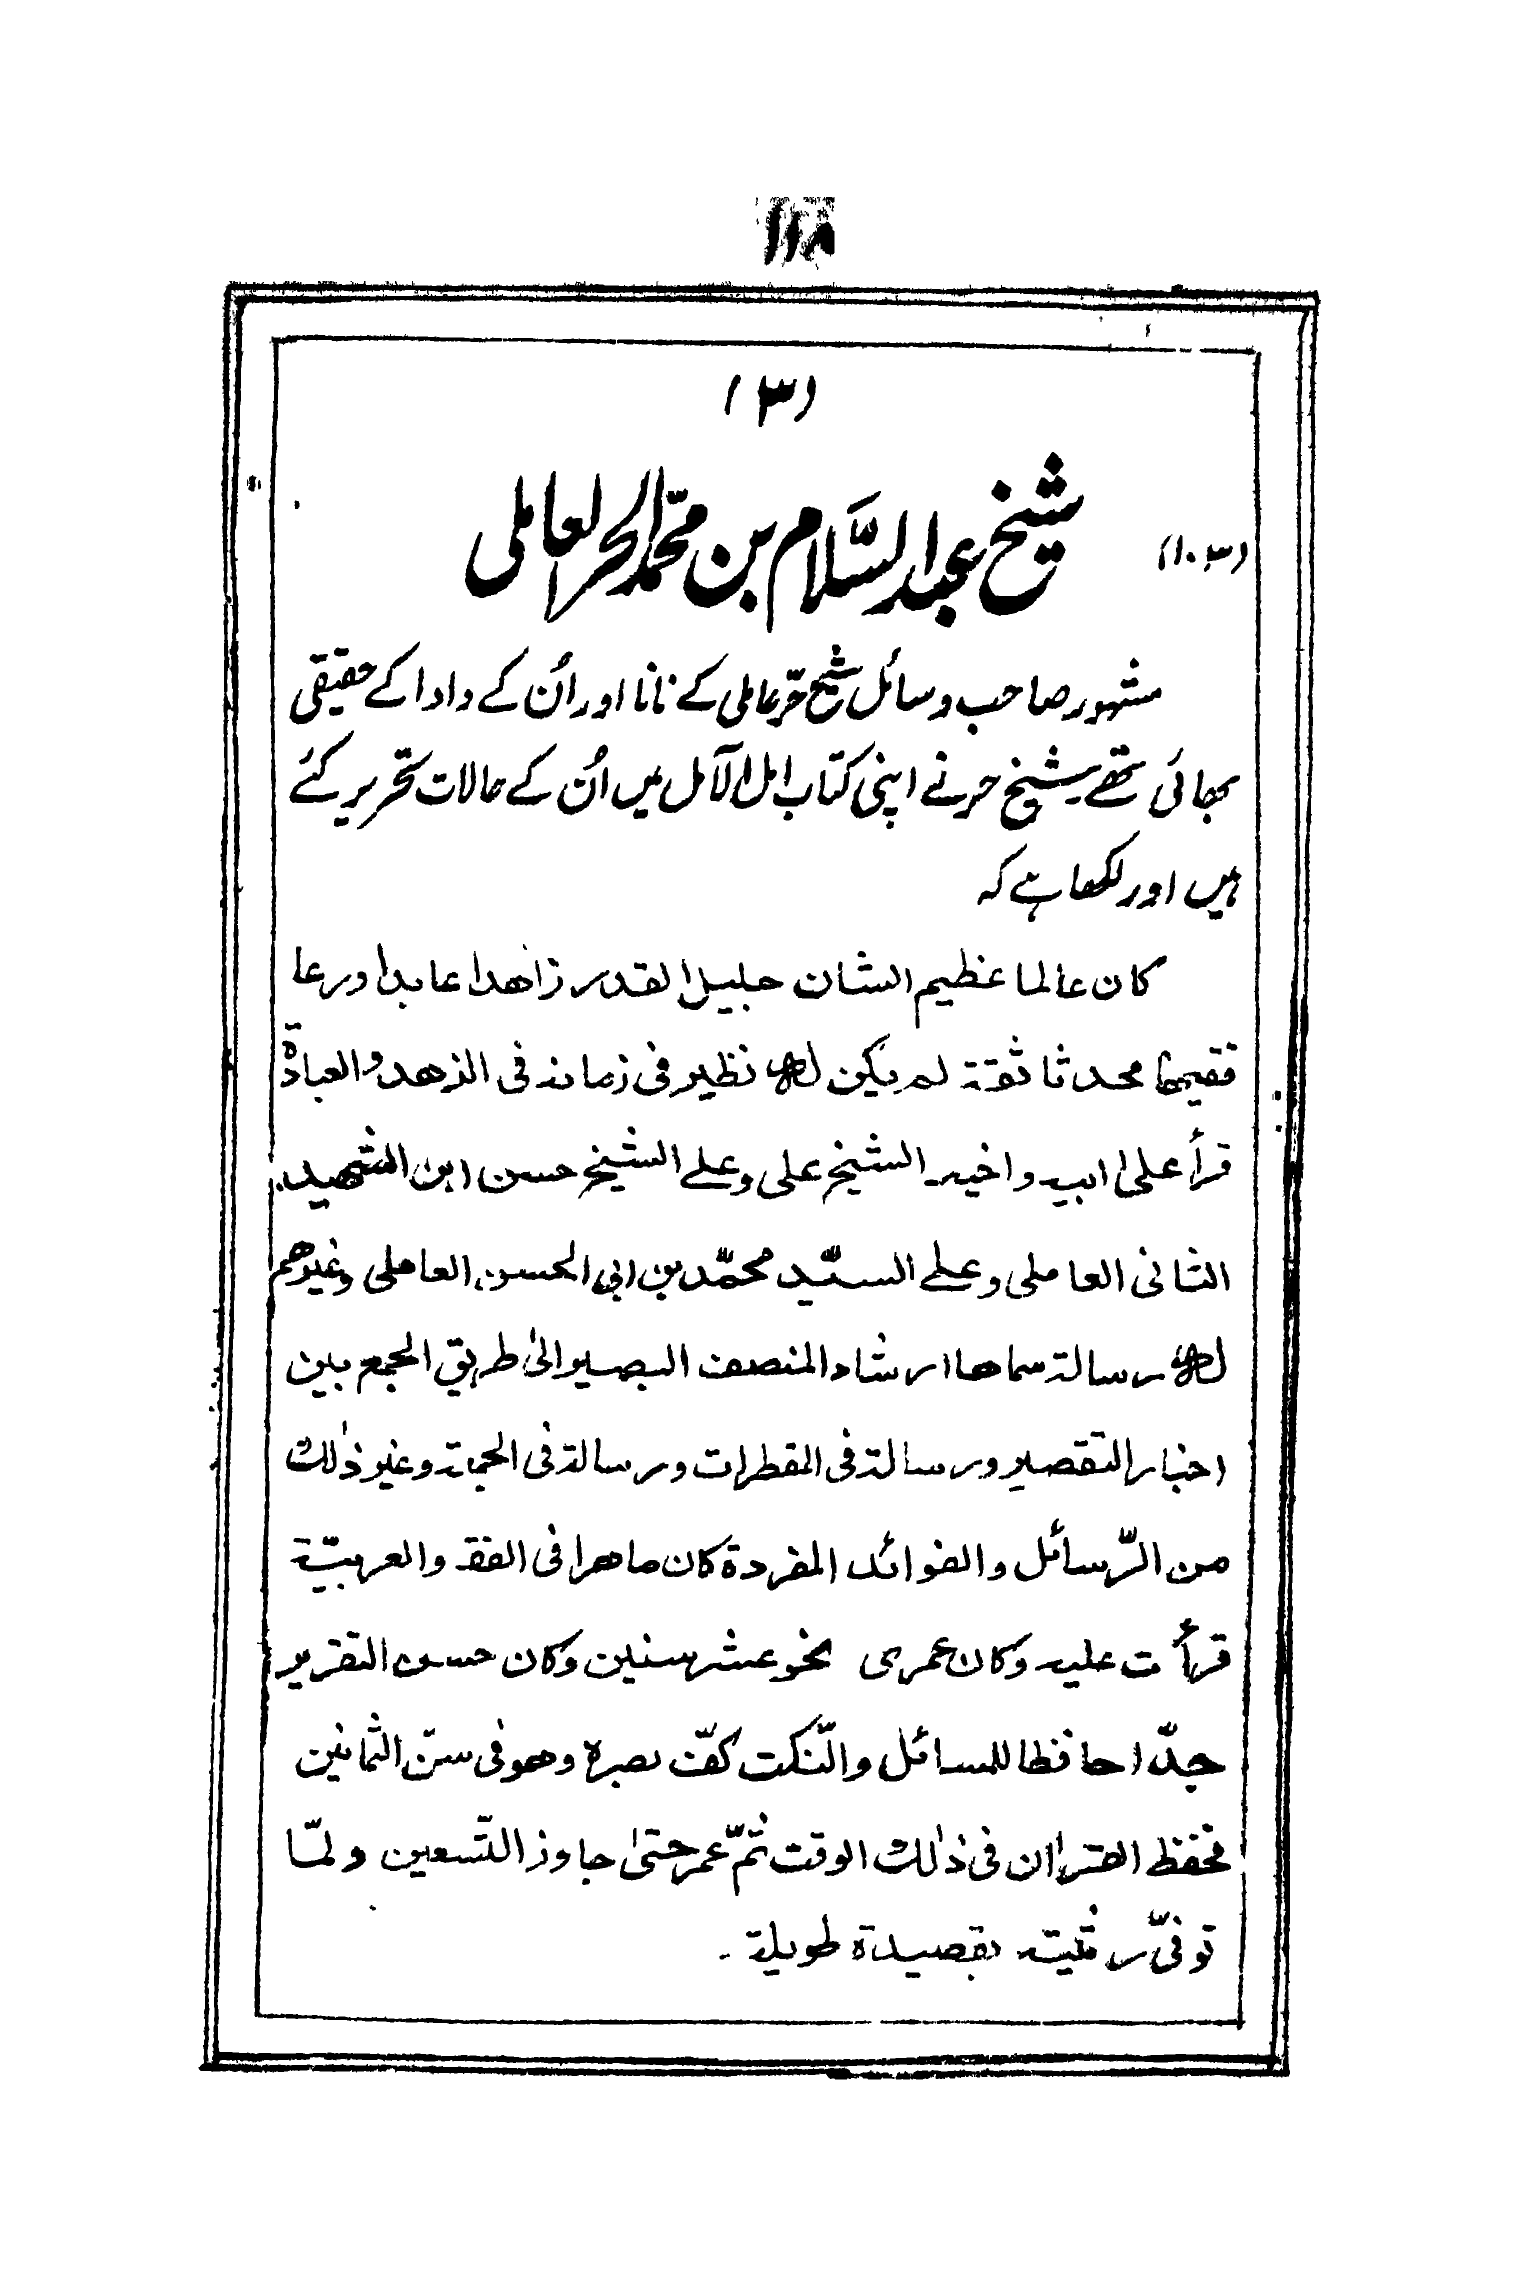 ۱۱۸
(۳)
(۱۰۳) شیخ عبدالسَّلام بن محمّد الحر العاملی
مشہور صاحب وسائل شیخ حرّ عاملی کے نانا اور اُن کے دادا کے حقیقی
بھائی تھے شیخ حر نے اپنی کتاب امل الآمل میں اُن کے حالات تحریر کئے
ہیں اور لکھا ہے کہ
کان عالما عظیم الشان جلیل القدر زاھدا عابدا ورعا
فقیھا محدثا ثقة لم یکن لہ نظیر فی زمانہ فی الزھد والعبادة
قرأ علیٰ ابیہ واخیہ الشیخ علی وعلے الشیخ حسن ابن الشھید
الثانی العاملی وعلے السیّد محمّد بن ابی الحسن العاملی وغیرھم
لہ رسالة سماھا ارشاد المنصف البصیر الیٰ طریق الجمع بین
اخبار التقصیر ورسالة فی المفطرات ورسالة فی الجمعة وغیر ذٰلک
من الرّسائل والفوائد المفردة کان ماھرا فی الفقہ والعربیّة
قرأت علیہ وکان عمری نحو عشر سنین وکان حسن التقریر
جدّا حافظا للمسائل والنّکت کفّ بصرہ وھو فی سنّ الثمانین
فحفظ القراٰن فی ذٰلک الوقت ثمّ عمر حتیٰ جاوز التّسعین ولمّا
توفیّ رثیتہ بقصیدة طویلة ۔